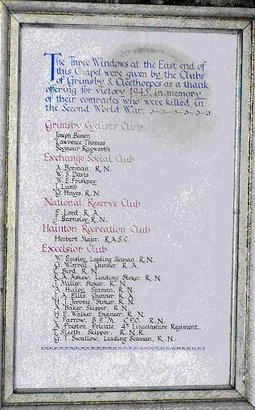 The Three Windows at the East end of
this Chapel were given by the Clubs
of Grimsby & Cleethorpes as a thank
offering for victory 1945 in memory
of their comrades who were killed in
the Second World War.
Grimsby Cyclists Club
Joseph
Lawrence Thomas
Seymour Rayworth
Exchange Social Club
A. Borman R.N.
W. S. Davis
W. E. Friskney
J. Lumb
Hayes R.N.
National Reserve Club
E. Lord R.A.
Barnsley R.N.
Haunton Recreation Club
Herbert Major R.A.S.C.
Excelsior Club
W. Emsley, Leading Seaman, R.N.
G. Worrell Gunner R.A.
Bird R.N.
R.A. Askew, Leading Stoker, R.N.
J. Miller Stoker, R.N.
Hulley Seaman, R.N.
Ellis Gunner R.A.
Jerome Stoker, R.N.
A. Baker Skipper, R.N.
H. E. Walker Engineer, R.N.
C. Farrow, B.E.M. C.P.O. R.N.
Preston Private, 4th Lincolnshire Regiment.
F. Sleeth Skipper R.N.R.
Swallow, Leading Seaman, R.N.